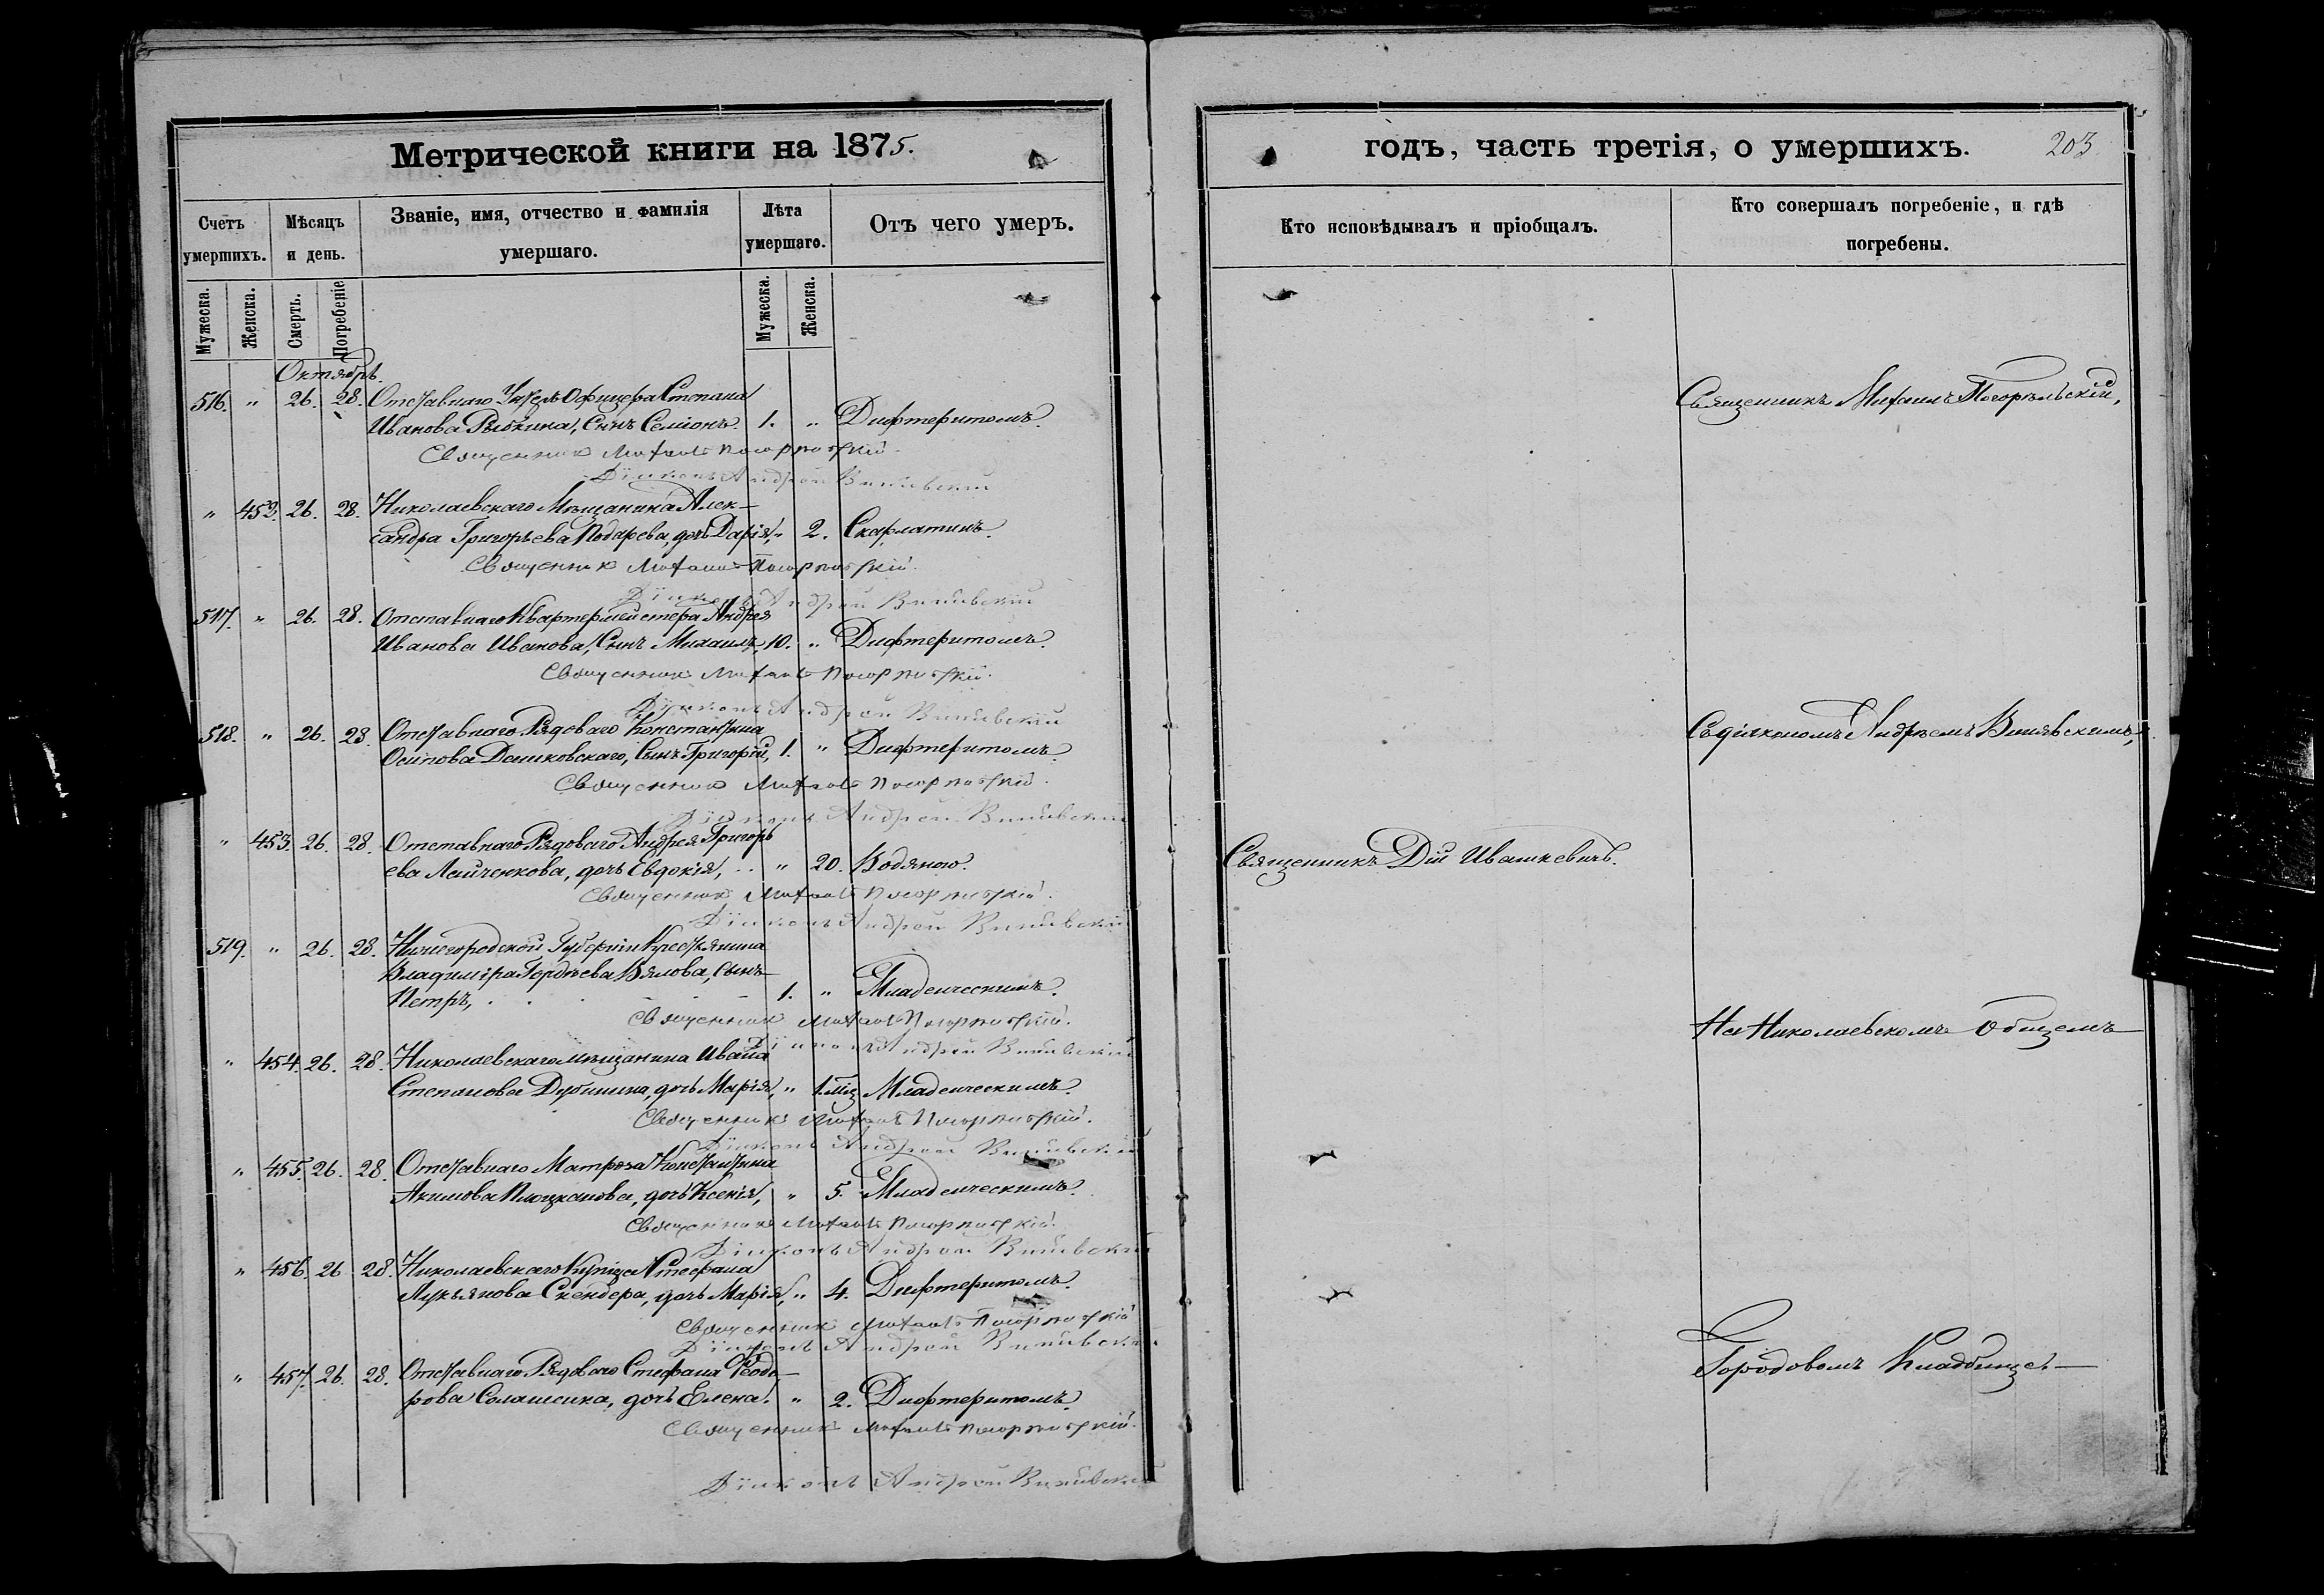 Метрической книги на 1875.
Счетъ умершихъ.
Мѣсяцъ и день.
Званіе, имя, отчество и фамилія умершаго.
Лѣта умершаго.
Отъ чего умеръ.
Мужеска. Женска. Смерть. Погребеніе Мужеска. Женска.
Октябрь.
516. " 26. 28. Отставнаго Унтеръ Офицера Степана
Иванова Рыбкина, Сынъ Семіонъ. 1. " Дифтеритомъ.
Священникъ Михаилъ Погорѣльскій.
Діаконъ Андрей
" 453. 26. 28. Николаевскаго Мѣщанина Алек-
сандра Григорьева Подарева, дочь Дарія, " 2. Скарлатинъ.
Священникъ Михаилъ Погорѣльскій.
Діаконъ Андрей
517. " 26. 28. Отставнаго Квартермейстера Андрея
Иванова Иванова, Сынъ Михаилъ, 10. " Дифтеритомъ.
Священникъ Михаилъ Погорѣльскій.
Діаконъ Андрей
518. " 26. 28. Отставнаго Рядоваго Константина
Осипова Сынъ Григорій, 1. " Дифтеритомъ.
Священникъ Михаилъ Погорѣльскій.
Діаконъ Андрей
" 453. 26. 28. Отставнаго Рядоваго Андрея Григорь
ева дочь Евдокія, " 20. Водяною.
Священникъ Михаилъ Погорѣльскій.
Діаконъ Андрей
519. " 26. 28. Нижегородской Губерніи Крестьянина
Владиміра Гордѣева Вялова, Сынъ
Петръ, 1. " Младенческимъ.
Священникъ Михаилъ Погорѣльскій.
Діаконъ Андрей
" 454. 26. 28. Николаевскаго мѣщанина Ивана
Степанова Дубинина, дочь Марія, " 1. Младенческимъ.
Священникъ Михаилъ Погорѣльскій.
Діаконъ Андрей
" 455. 26. 28. Отставнаго Матроза Константина
Акимова дочь Ксенія, " 5. Младенческимъ.
Священникъ Михаилъ Погорѣльскій.
Діаконъ Андрей
" 456. 26 28. Николаевскаго Купца Стефана
Лукьянова Скендера, дочь Марія, " 4. Дифтеритомъ.
Священникъ Михаилъ Погорѣльскій
Діаконъ Андрей
" 457. 26. 28. Отставнаго Рядоваго Стефана Ѳеодо-
рова дочь Елена. " 2. Дифтеритомъ.
Священникъ Михаилъ Погорѣльскій.
Діаконъ Андрей
годъ, часть третія, о умершихъ. 203
Кто исповѣдывалъ и пріобщалъ.
Кто совершалъ погребеніе, и гдѣ погребены.
Священникъ Михаилъ Погорѣльскій,
Съ діакономъ Андреемъ
Священникъ Дій Ивашкевичъ.
На Николаевскомъ Общемъ
Городовомъ Кладбищѣ.